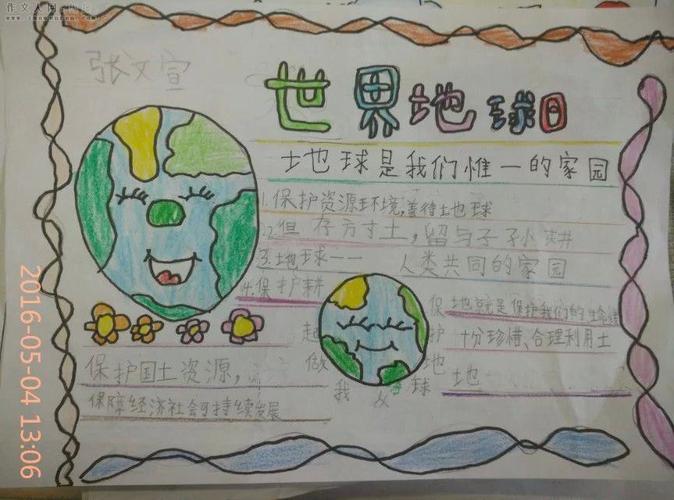 张文宣
世界地球日
地球是我们惟一的家园
1.保护资源环境,善待地球
2.但存方寸土,留与子孙耕
3.地球—— 人类共同的家园
4.保护耕地就是保护我们的生命线
保护地球
起做我
十分珍惜、合理利用土地
保护国土资源,
保障经济社会可持续发展
2016-05-04 13:06